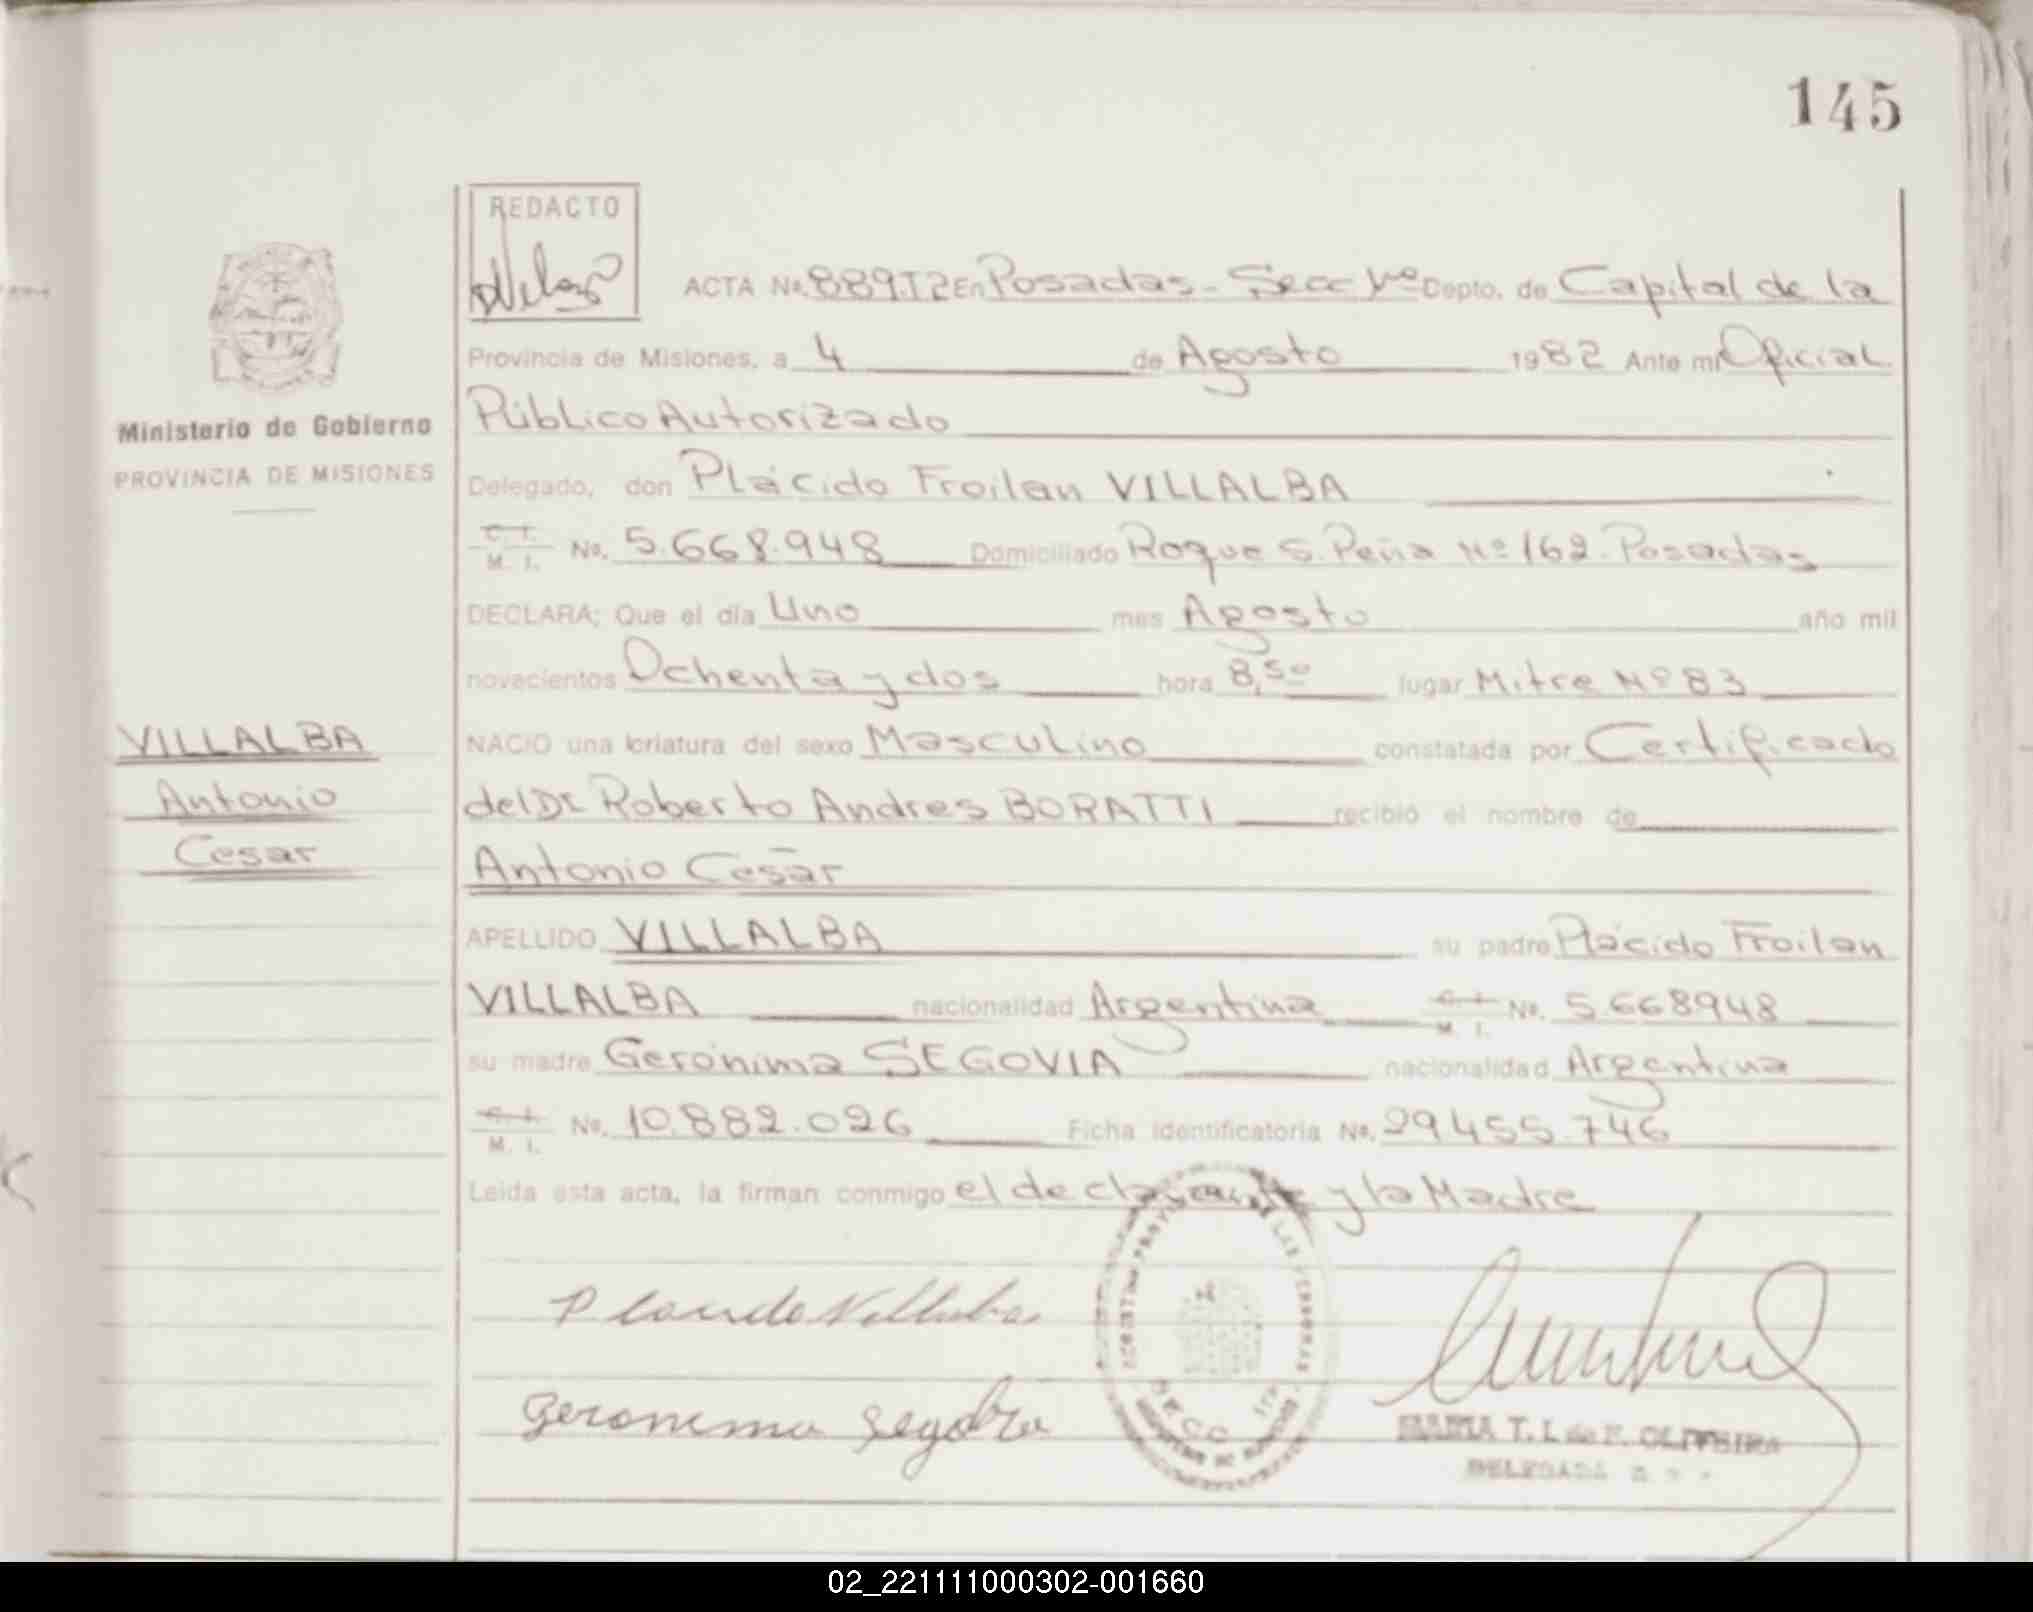 145
REDACTO
ACTA No. 889.T2 En Posadas - Secc Vº Depto. de Capital de la
Provincia de Misiones, a 4 de Agosto 1982 Ante mi Oficial
Público Autorizado
Delegado, don Plácido Froilan VILLALBA
C. I.
M. I. No. 5.668.948 Domiciliado Roque S. Peña Nº 162. Posadas
DECLARA; Que el día Uno mes Agosto año mil
novecientos Ochenta y dos hora 8,50 lugar Mitre Nº 83
NACIO una criatura del sexo Masculino constatada por Certificado
del Dr Roberto Andres BORATTI recibió el nombre de
Antonio Cesar
APELLIDO VILLALBA su padre Plácido Froilan
VILLALBA nacionalidad Argentina C. I. M. I. No. 5.668948
su madre Gerónima SEGOVIA nacionalidad Argentina
C. I.
M. I. No. 10.882.026 Ficha identificatoria No. 29455.746
Leida esta acta, la firman conmigo el declarante y la Madre
Placido Villalba
Geronima Segovia
MARIA T. I. de F. OLIVEIRA
DELEGADA
Ministerio de Gobierno
PROVINCIA DE MISIONES
VILLALBA
Antonio
Cesar
02_221111000302-001660